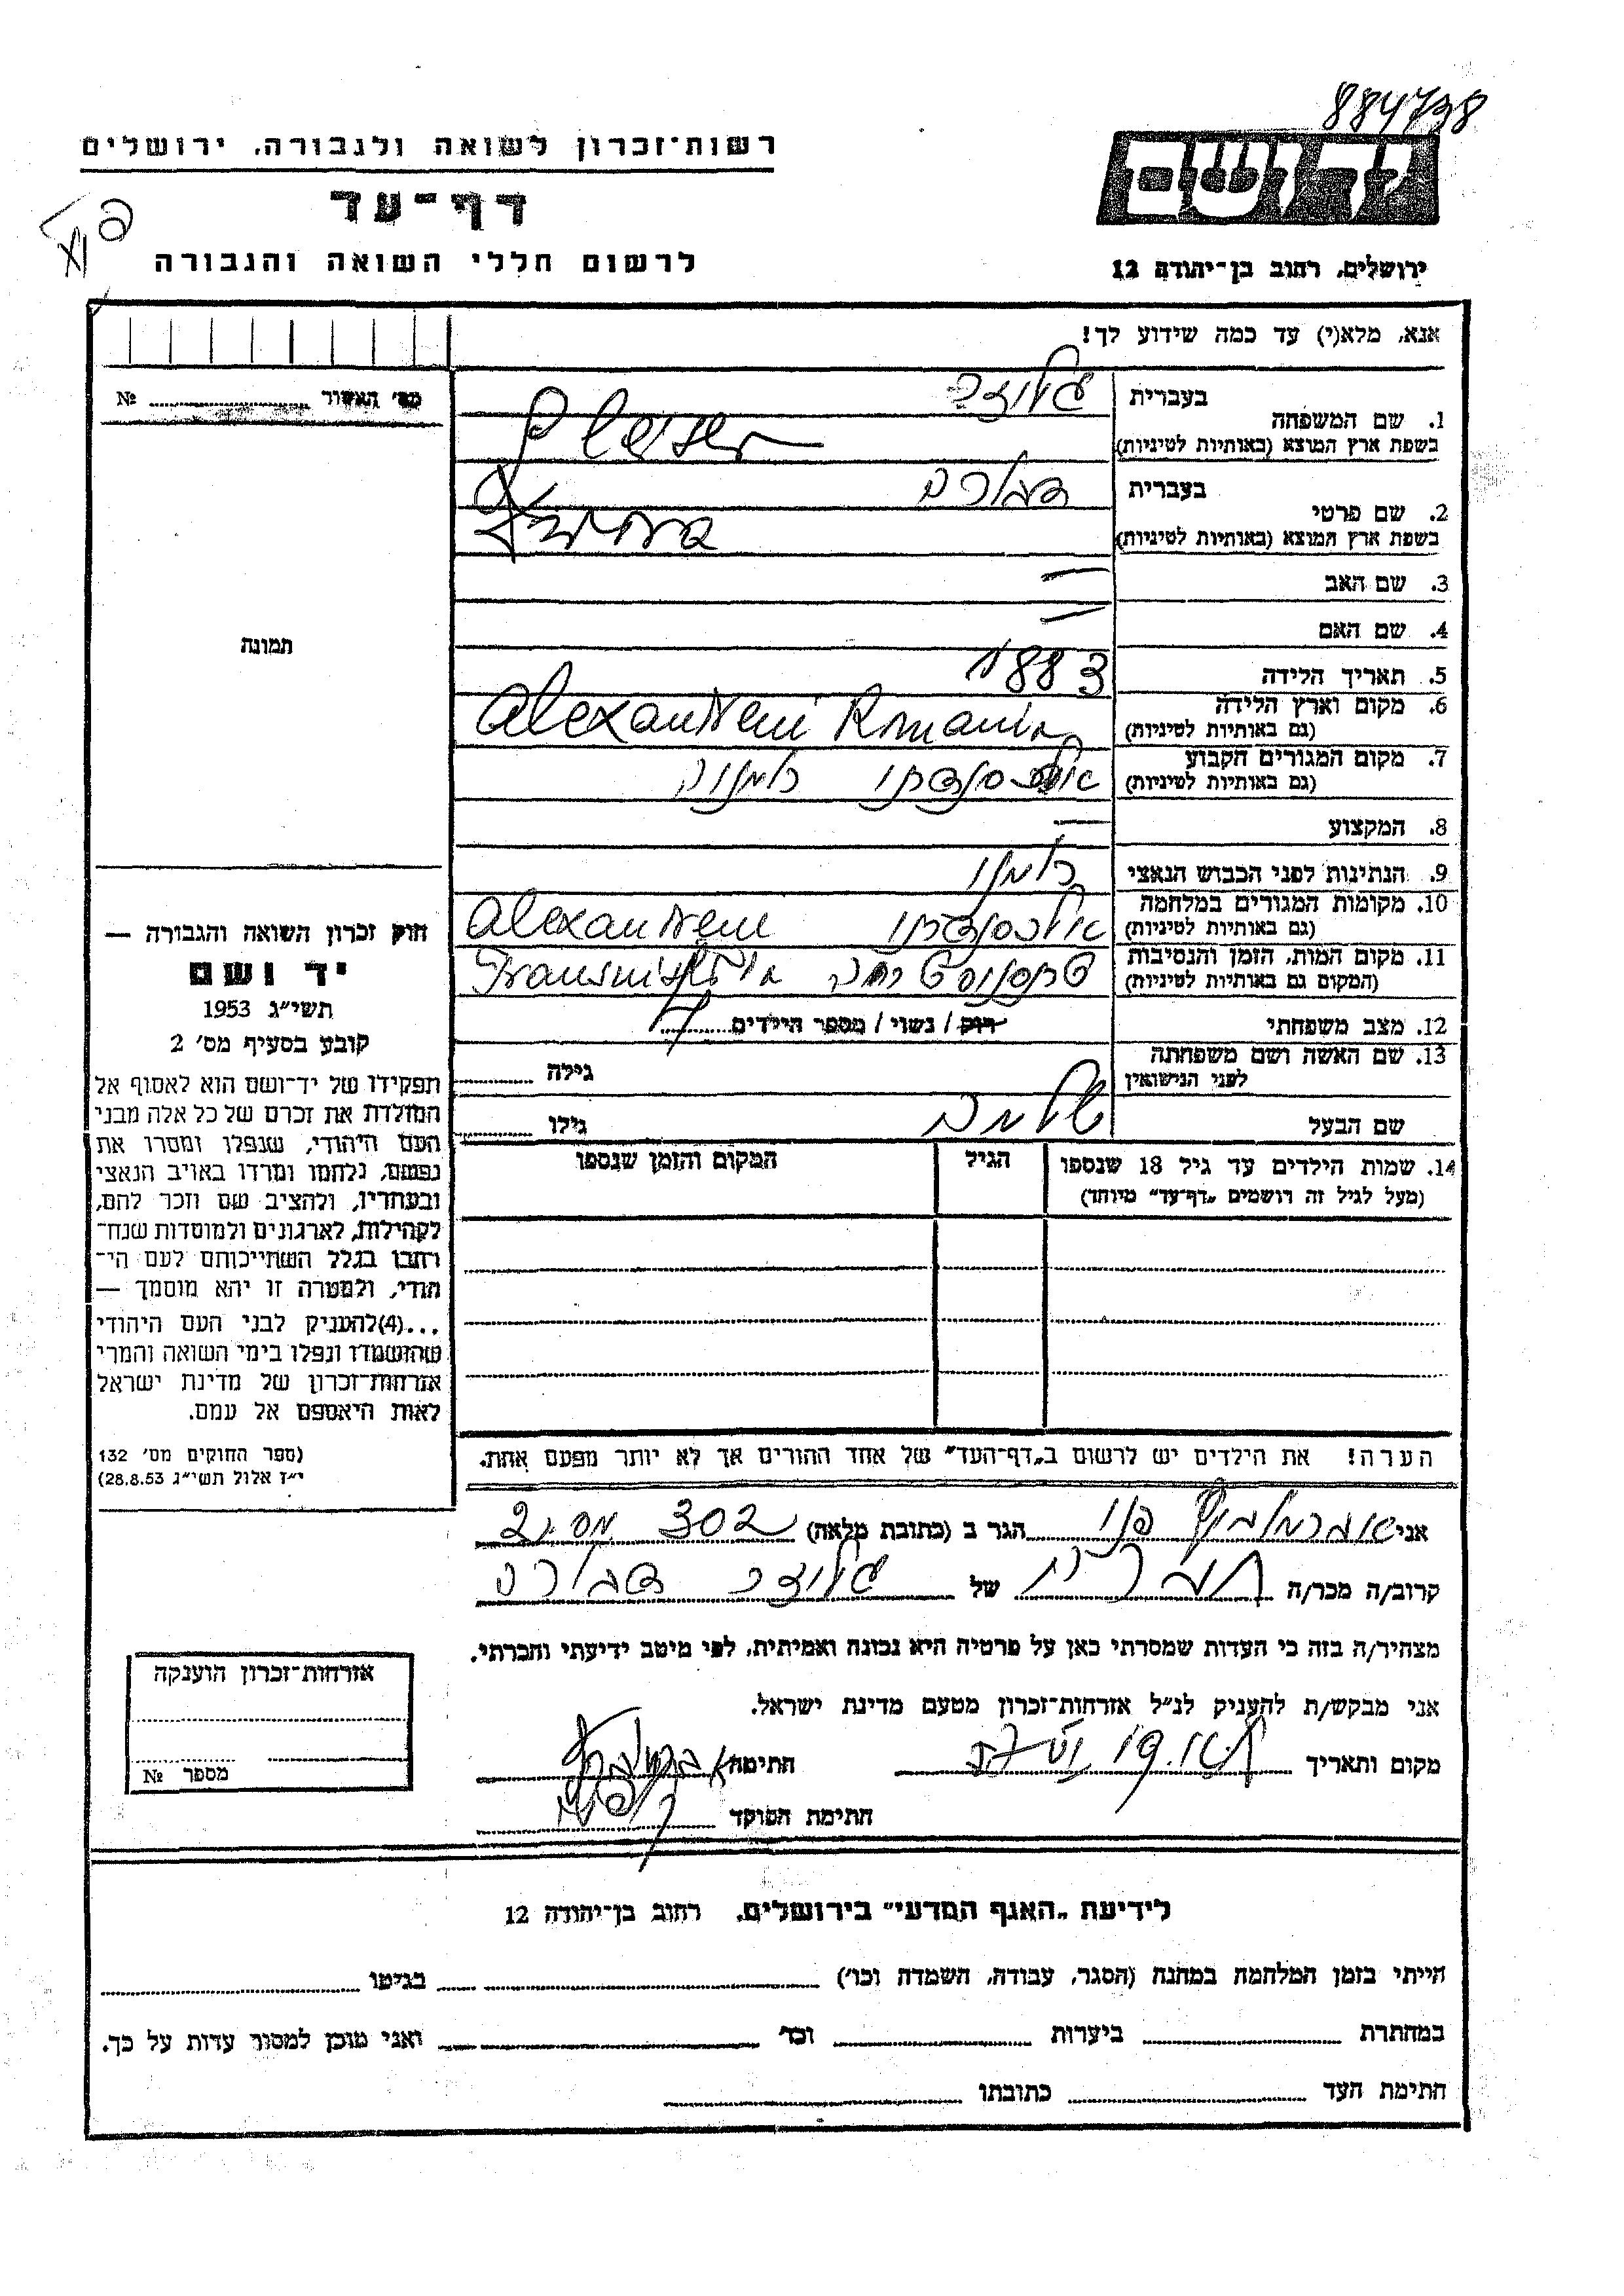 884738
רשות־זכרון לשואה ולגבורה, ירושלים
דף־עד
לרשום חללי השואה והגבורה
ירושלים, רחוב בן־יהודה 12
אנא, מלא(י) עד כמה שידוע לך!
מס׳ האשור № 
1. שם המשפחה
בעברית
בשפת ארץ המוצא (באותיות לטיניות)
2. שם פרטי
בעברית
בשפת ארץ המוצא (באותיות לטיניות)
3. שם האב —
4. שם האם —
5. תאריך הלידה 1883
6. מקום וארץ הלידה
(גם באותיות לטיניות) Alexandreni Romania
7. מקום המגורים הקבוע
(גם באותיות לטיניות) אלכסנדרני רומניה
8. המקצוע —
9. הנתינות לפני הכבוש הנאצי רומני
10. מקומות המגורים במלחמה
(גם באותיות לטיניות) אלכסנדרני Alexandreni
11. מקום המות, הזמן והנסיבות
(המקום גם באותיות לטיניות) טרנסניסטריה
12. מצב משפחתי רוק / נשוי / מספר הילדים
13. שם האשה ושם משפחתה
לפני הנישואין
גילה
שם הבעל שלמה גילו
14. שמות הילדים עד גיל 18 שנספו
(מעל לגיל זה רושמים „דף־עד״ מיוחד)
הגיל
המקום והזמן שנספו
תמונה
חוק זכרון השואה והגבורה —
יד ושם
תשי״ג 1953
קובע בסעיף מס׳ 2
תפקידו של יד־ושם הוא לאסוף אל
המולדת את זכרם של כל אלה מבני
העם היהודי, שנפלו ומסרו את
נפשם, נלחמו ומרדו באויב הנאצי
ובעוזריו, ולהציב שם וזכר להם,
לקהילות, לארגונים ולמוסדות שנח־
רבו בגלל השתייכותם לעם הי־
הודי, ולמטרה זו יהא מוסמך —
...(4)להעניק לבני העם היהודי
שהושמדו ונפלו בימי השואה והמרי
אזרחות־זכרון של מדינת ישראל
לאות היאספם אל עמם.
(ספר החוקים מס׳ 132
י״ז אלול תשי״ג 28.8.53)
הערה! את הילדים יש לרשום ב„דף־העד״ של אחד ההורים אך לא יותר מפעם אחת.
אני הגר ב (כתובת מלאה) 302
קרוב/ה מכר/ה של
מצהיר/ה בזה כי העדות שמסרתי כאן על פרטיה היא נכונה ואמיתית, לפי מיטב ידיעתי והכרתי.
אני מבקש/ת להעניק לנ״ל אזרחות־זכרון מטעם מדינת ישראל.
מקום ותאריך חתימה
חתימת הפוקד
אזרחות־זכרון הוענקה
מספר №
לידיעת „האגף המדעי״ בירושלים, רחוב בן־יהודה 12
הייתי בזמן המלחמה במחנה (הסגר, עבודה, השמדה וכו׳) בגיטו
במחתרת ביערות וכד׳ ואני מוכן למסור עדות על כך.
חתימת העד כתובתו